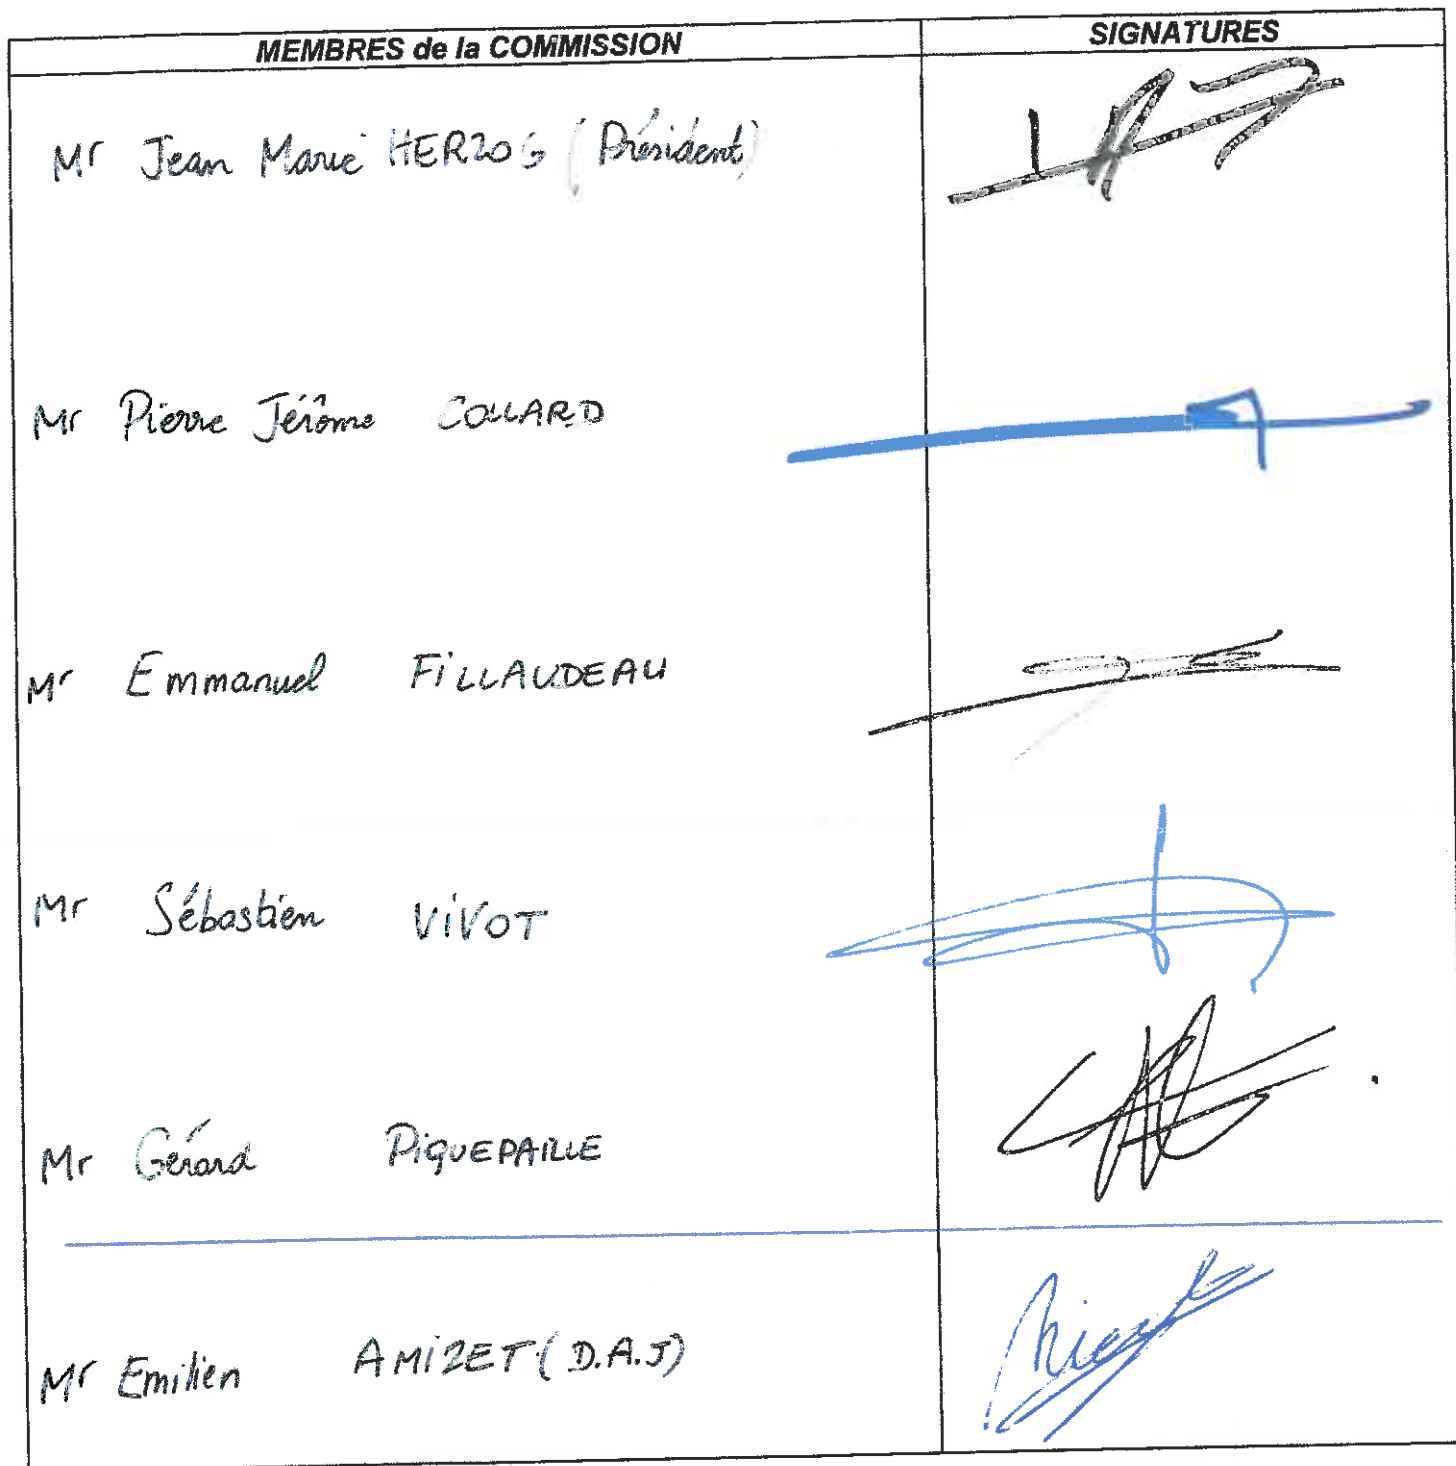 MEMBRES de la COMMISSION SIGNATURES
Mr Jean Marie HERZOG (Président)
Mr Pierre Jérôme COLLARD
Mr Emmanuel FILLAUDEAU
Mr Sébastien VIVOT
Mr Gérard PIQUEPAILLE
Mr Emilien AMIZET (D.A.J)